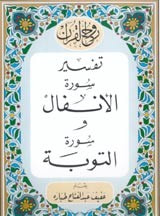 روح القرآن
تفسير
سورة
الأنفال
و
سورة
التوبة
بقلم
عفيف عبد الفتاح طبارة